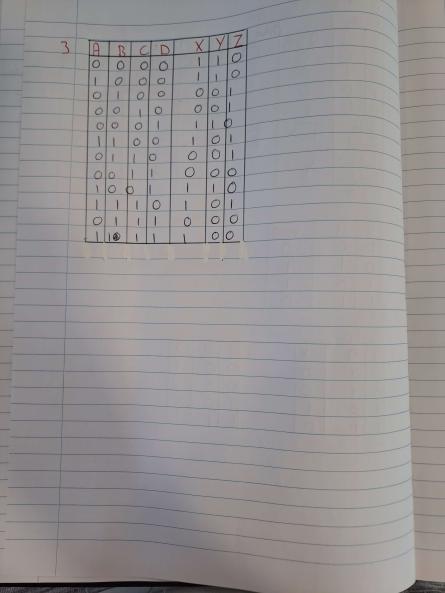 3 A B C D X Y Z
0 0 0 0 1 1 0
1 0 0 0 1 1 0
0 1 0 0 0 0 1
0 0 1 0 0 0 1
0 0 0 1 1 1 0
1 1 0 0 1 0 1
0 1 1 0 0 0 1
0 0 1 1 0 0 0
1 0 0 1 1 1 0
1 1 1 0 1 0 1
0 1 1 1 0 0 0
1 1 1 1 1 0 0